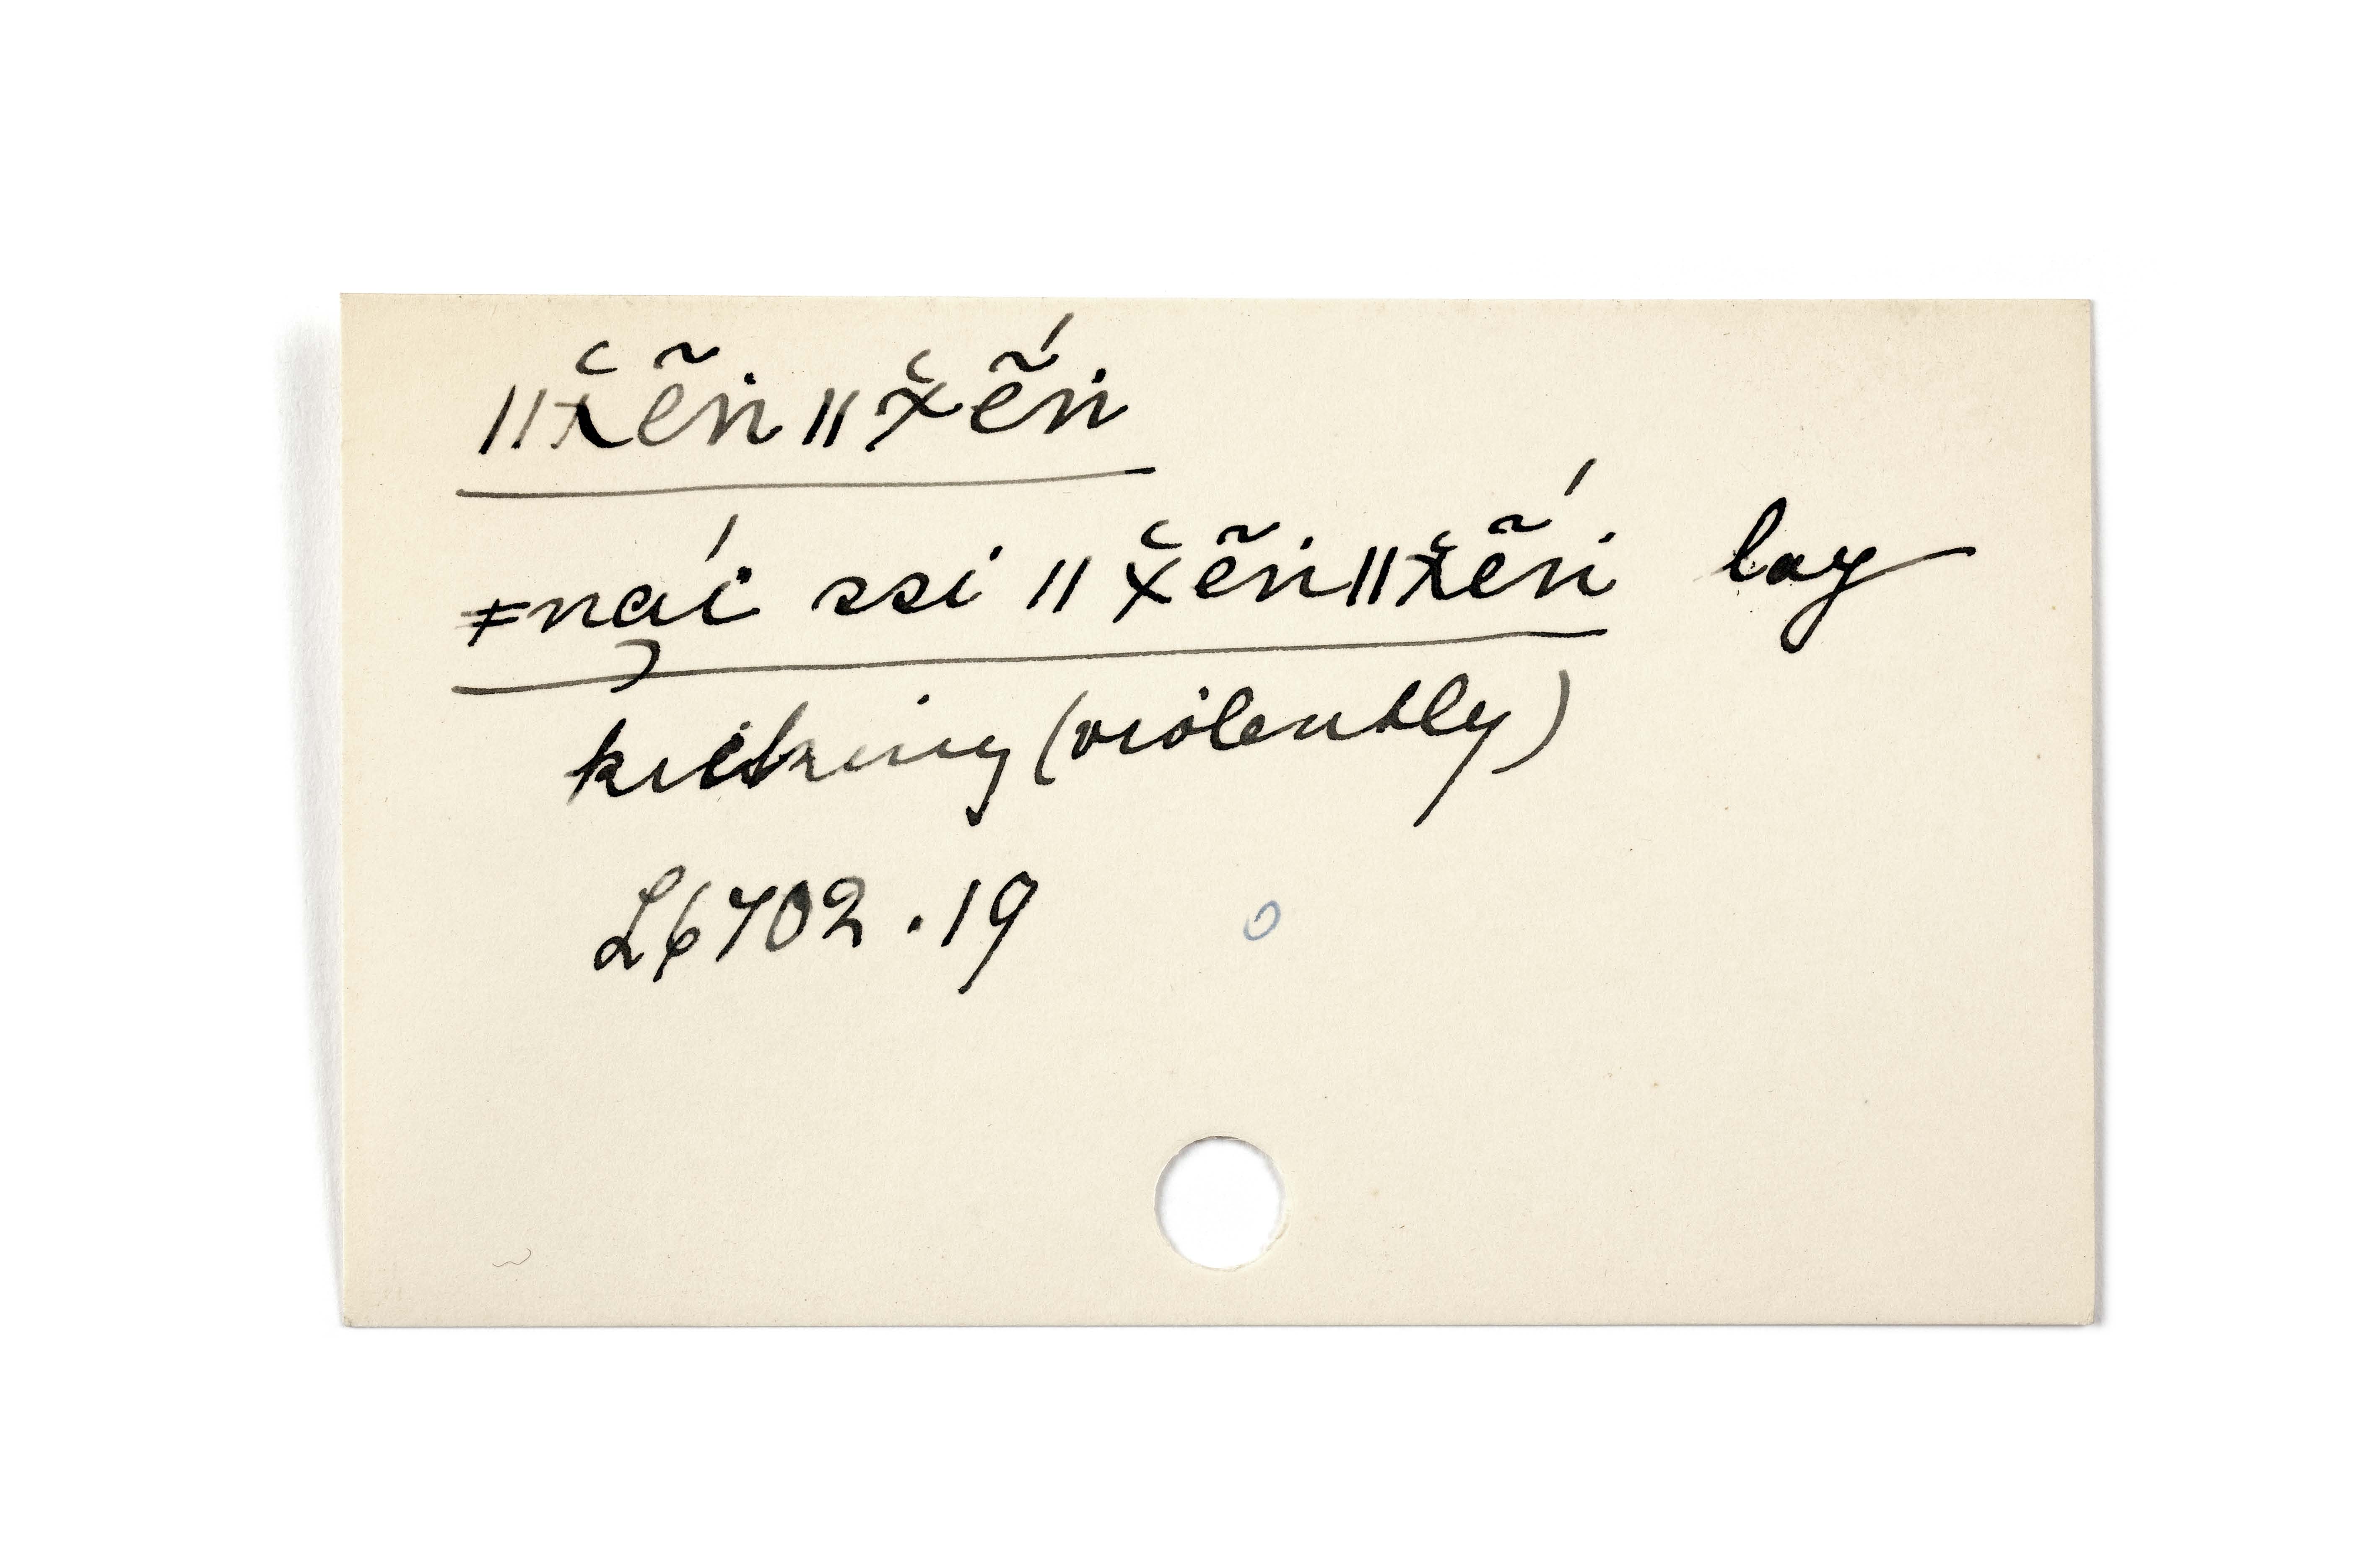 ǁx̆ẽn ǁx̆ẽ́n
≠ną́i ssi ǁx̆ẽnǁx̆ẽ́n lay
kicking (violently)
L6702.19
o